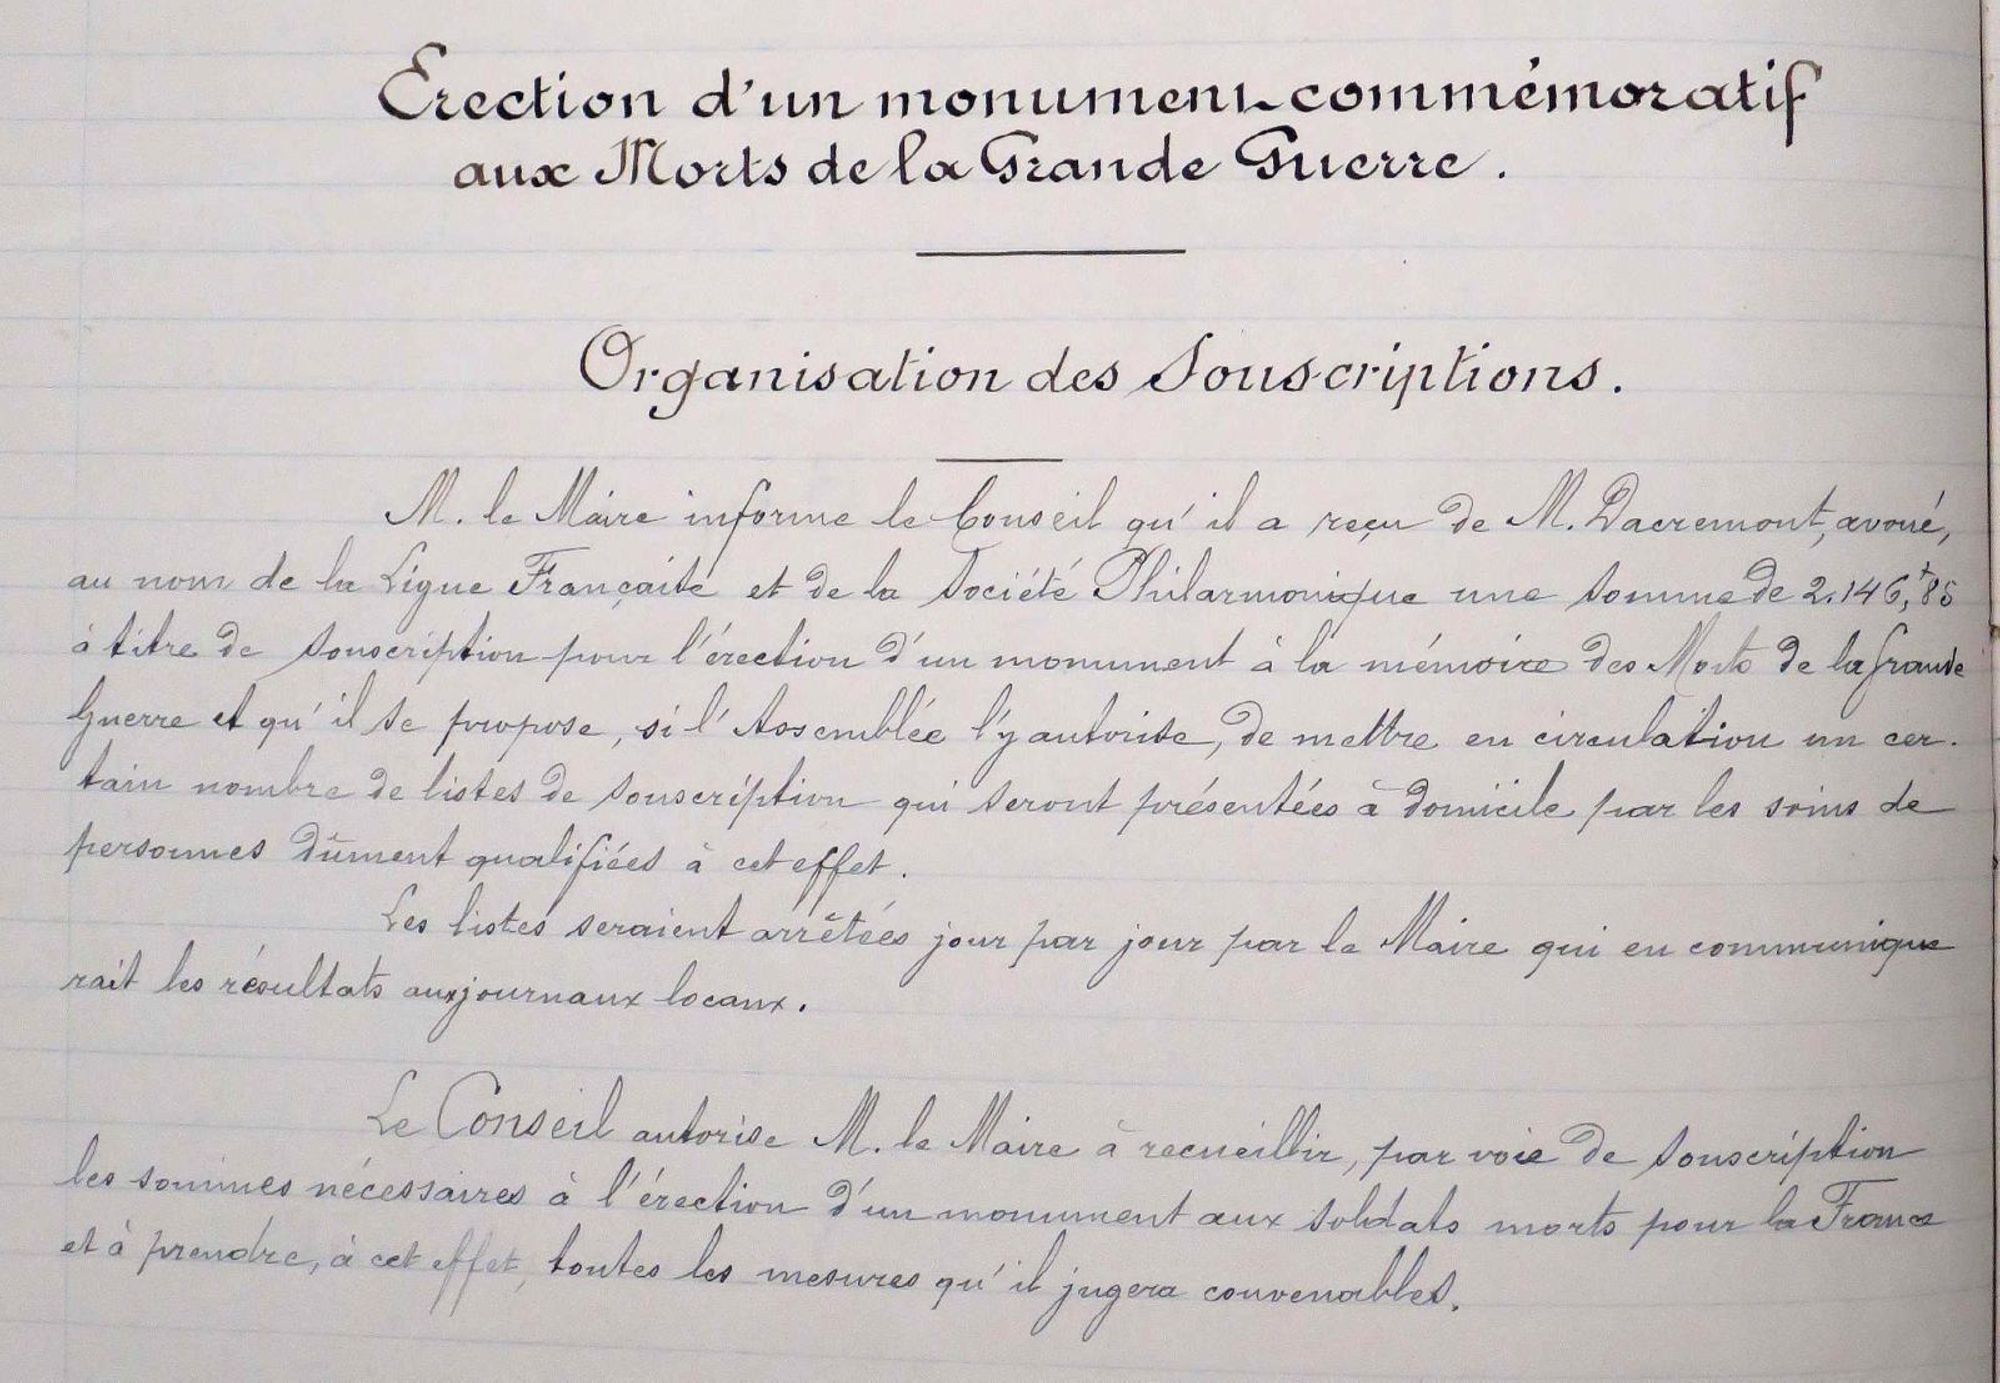 Erection d'un monument commémoratif
aux Morts de la Grande Guerre.
Organisation des Souscriptions.
M. le Maire informe le Conseil qu'il a reçu de M. Dacremont, avoué,
au nom de la Ligue Française et de la Société Philarmonique une somme de 2.146,f85
à titre de souscription pour l'érection d'un monument à la mémoire des Morts de la Grande
Guerre et qu'il se propose, si l'Assemblée l'y autorise, de mettre en circulation un cer-
tain nombre de listes de souscription qui seront présentées à domicile par les soins de
personnes dûment qualifiées à cet effet.
Les listes seraient arrêtées jour par jour par le Maire qui en communique
rait les résultats aux journaux locaux.
Le Conseil autorise M. le Maire à recueillir, par voie de souscription
les sommes nécessaires à l'érection d'un monument aux soldats morts pour la France
et à prendre, à cet effet, toutes les mesures qu'il jugera convenables.